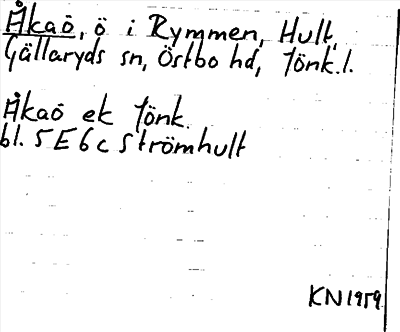 Åkaö, ö i Rymmen, Hult,
Gällaryds sn, Östbo hd, Jönk.l.
Åkaö ek Jönk.
bl. 5E6c Strömhult
KN1959